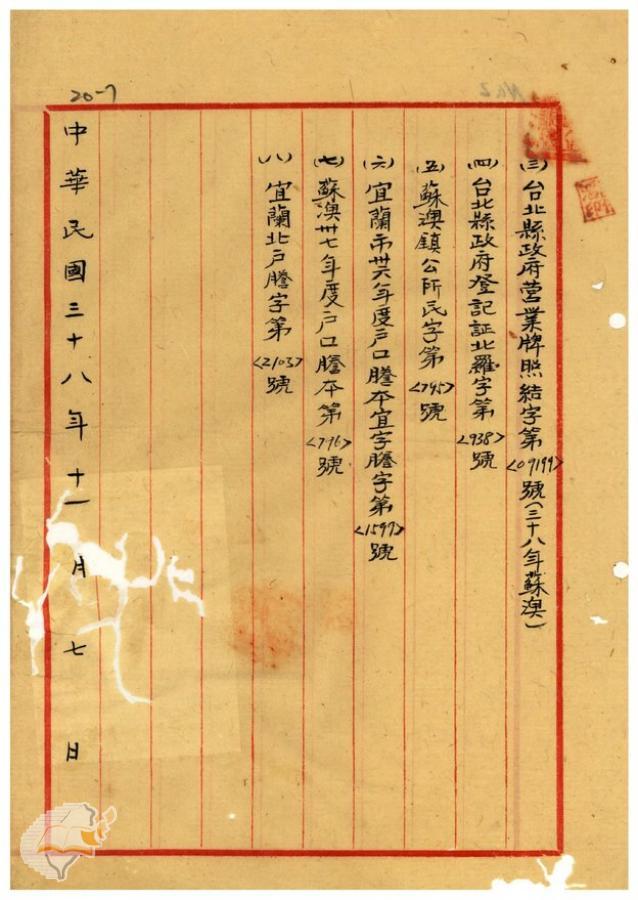 (三)台北縣政府營業牌照結字第<09199>號(三十八年蘇澳)
(四)台北縣政府登記証北羅字第<938>號
(五)蘇澳鎮公所民字第<745>號
(六)宜蘭市卅六年度戶口謄本宜字謄字第<1597>號
(七)蘇澳卅七年度戶口謄本第<776>號
(八)宜蘭北戶謄字第<2103>號
中華民國三十八年十一月七日
20-7